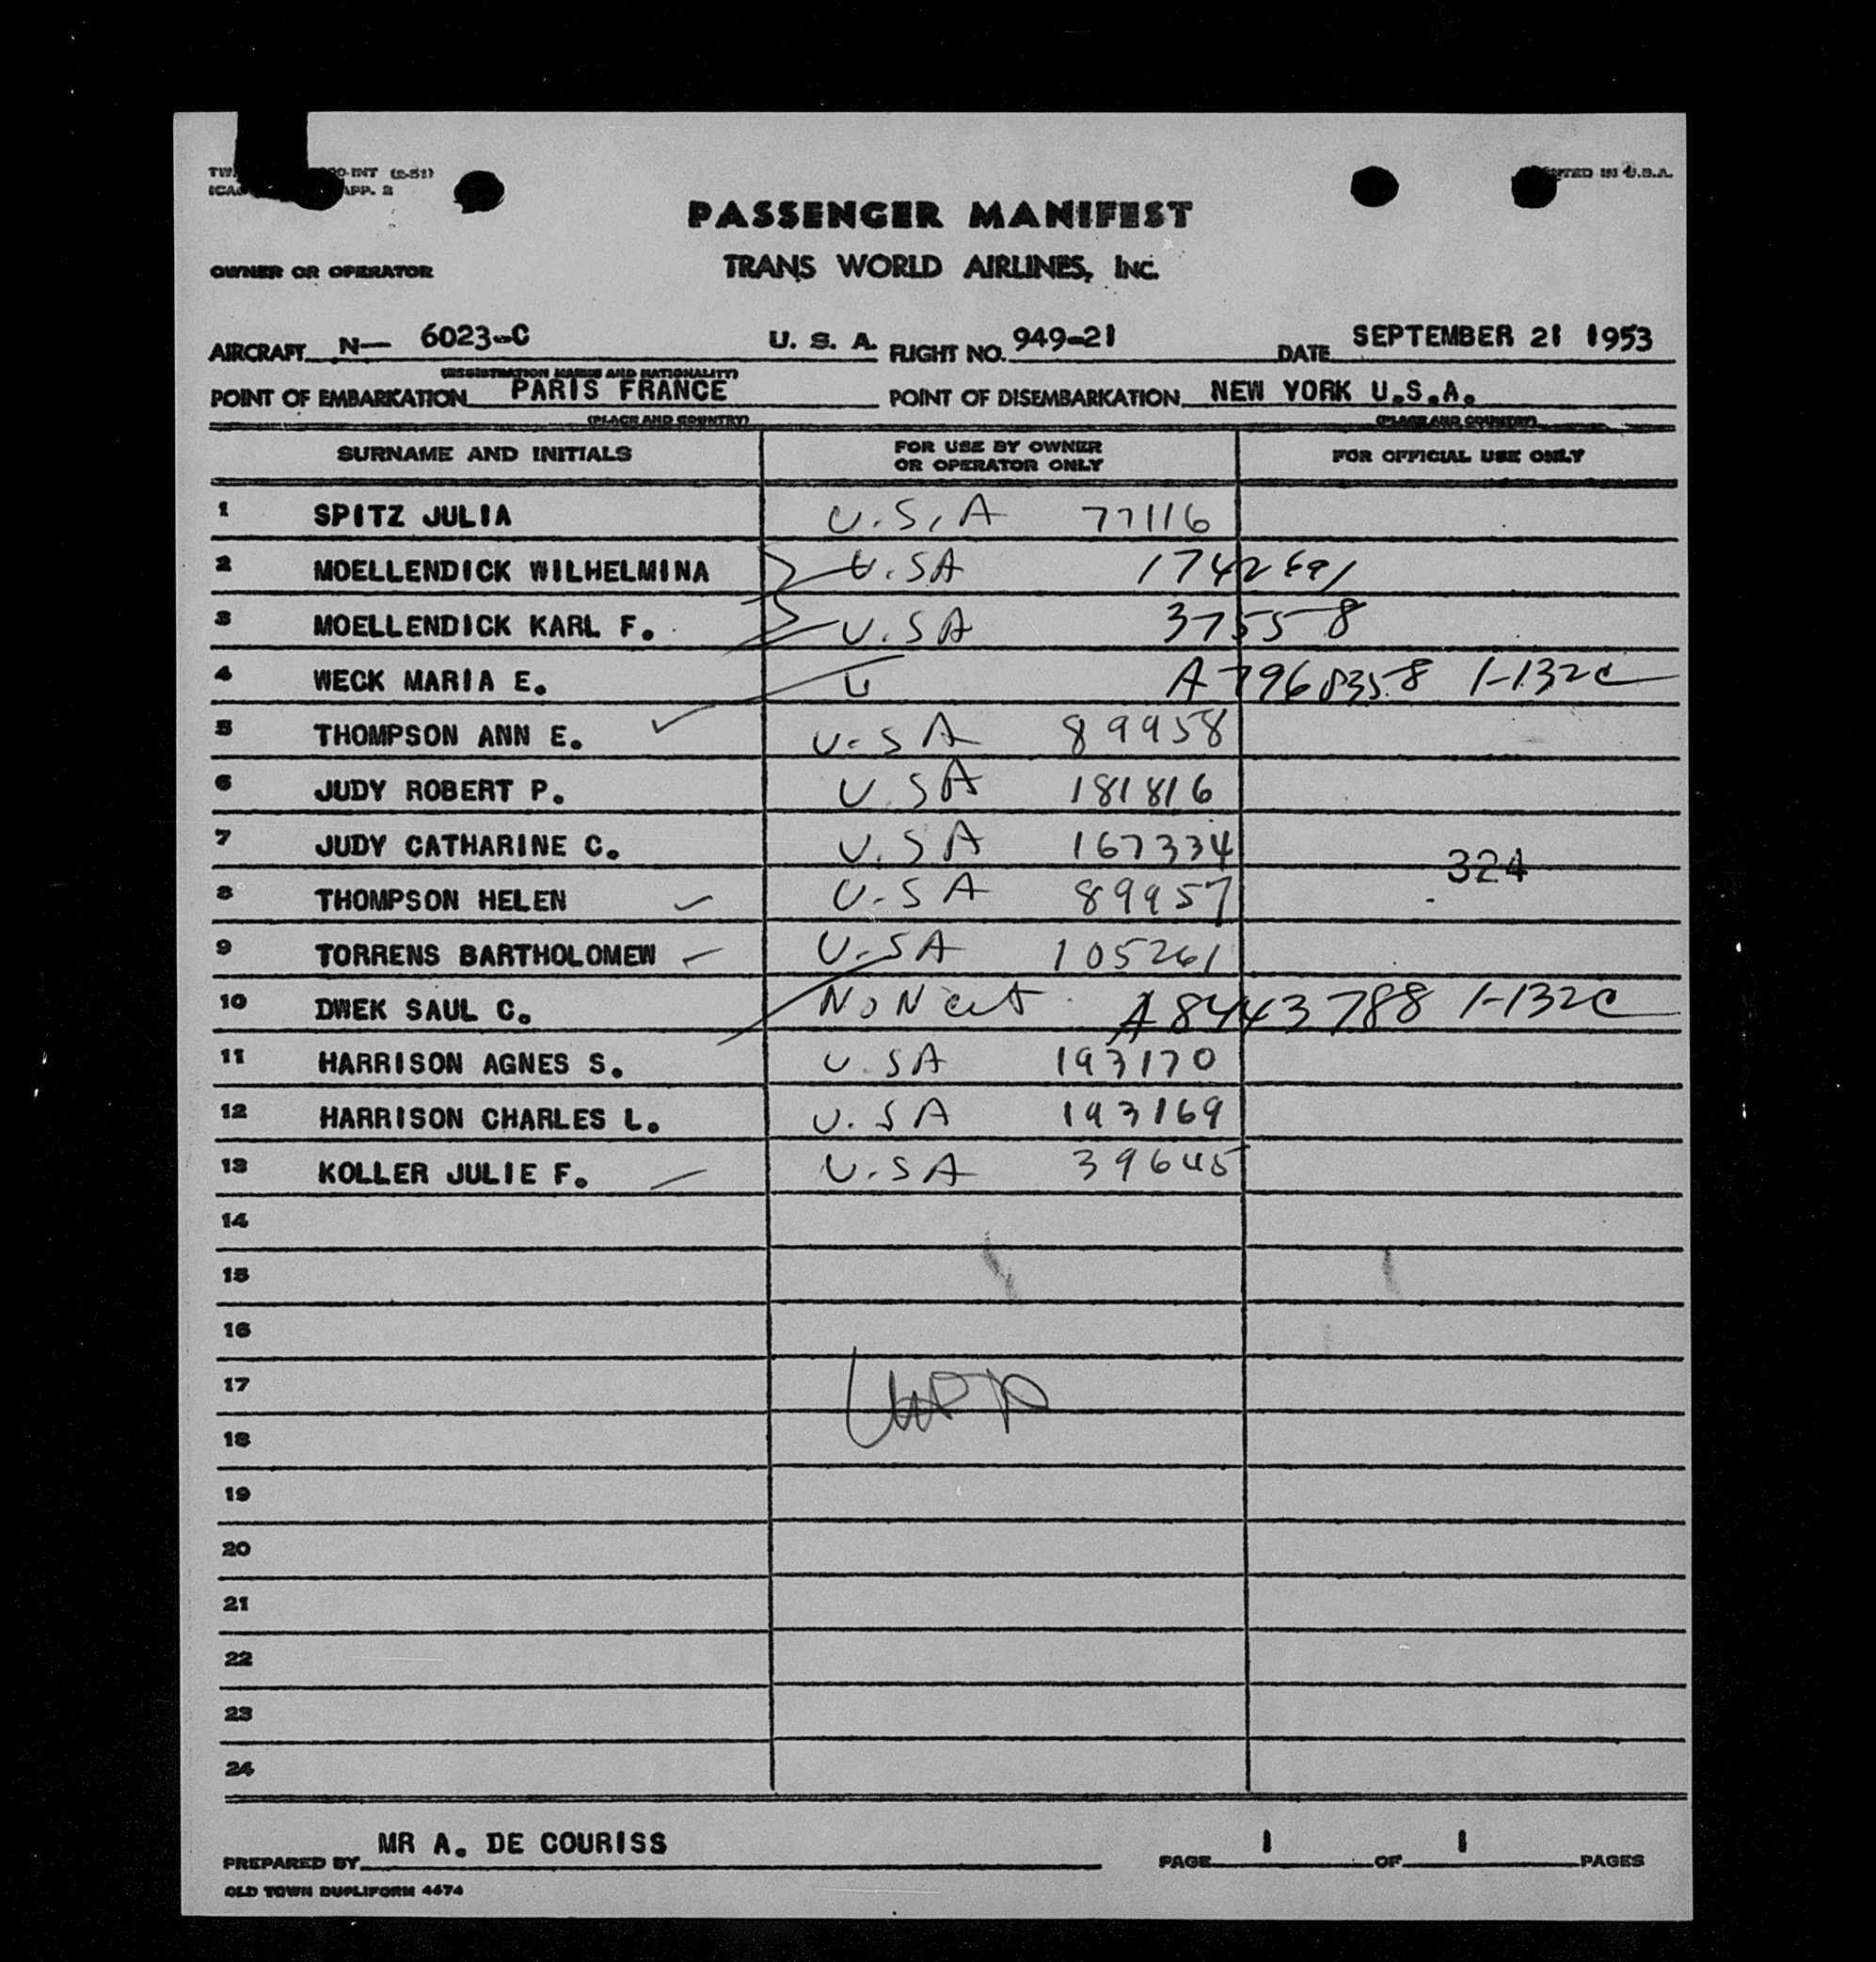 PASSENGER MANIFEST
TRANS WORLD AIRLINES, INC.
OWNER OR OPERATOR
AIRCRAFT N— 6023-C U. S. A. FLIGHT NO. 949-21 DATE SEPTEMBER 21 1953
(REGISTRATION MARKS AND NATIONALITY)
POINT OF EMBARKATION PARIS FRANCE POINT OF DISEMBARKATION NEW YORK U.S.A.
(PLACE AND COUNTRY) (PLACE AND COUNTRY)
SURNAME AND INITIALS FOR USE BY OWNER OR OPERATOR ONLY FOR OFFICIAL USE ONLY
1 SPITZ JULIA U.S.A 77116
2 MOELLENDICK WILHELMINA U.SA
3 MOELLENDICK KARL F. U.SA 37558
4 WECK MARIA E. U 1-132c
5 THOMPSON ANN E. U.SA 89958
6 JUDY ROBERT P. U.SA 181816
7 JUDY CATHARINE C. U.SA 167334
324
8 THOMPSON HELEN U.SA 89957
9 TORRENS BARTHOLOMEW U.SA 105261
10 DWEK SAUL C. A8443788 1-132c
11 HARRISON AGNES S. U.SA 193170
12 HARRISON CHARLES L. U.SA 193169
13 KOLLER JULIE F. U.SA 39645
14
15
16
17
18
19
20
21
22
23
24
PREPARED BY MR A. DE COURISS PAGE 1 OF 1 PAGES
OLD TOWN DUPLIFORM 4474